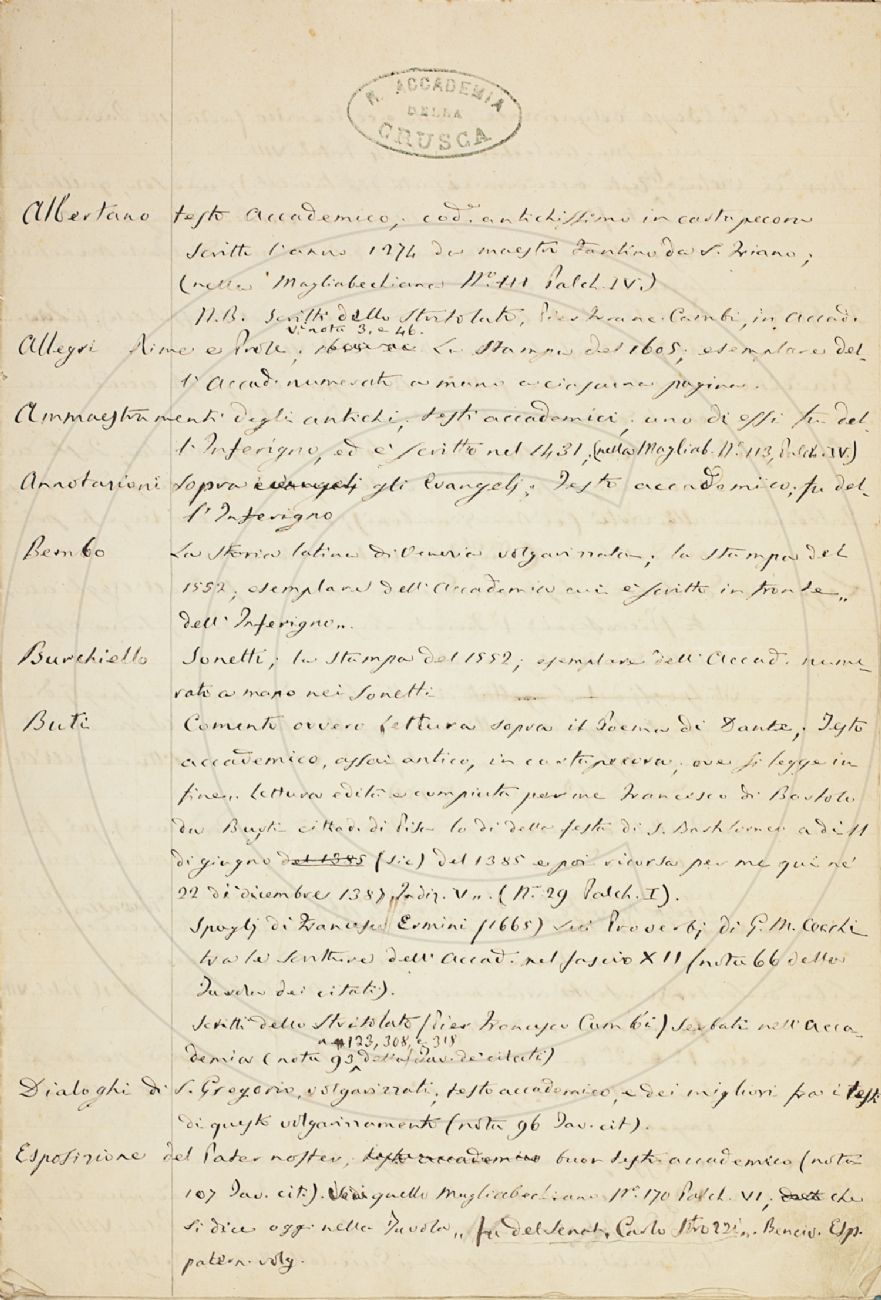 R. ACCADEMIA
DELLA
CRUSCA
Albertano testo Accademico, cod.e antichissimo in cartapecora
scritto l'anno 1274 da maestro Fantino da S. Friano;
(nella Magliabechiana N.o 111 Palch. IV.)
N.B. Scritti dello Stritolato, Pier Franc. Cambi, in Accad.
V. nota 3, e 46.
Allegri Rime e Prose, La stampa del 1605; esemplare del-
l'Accad. numerato a mano a ciascuna pagina.
Ammaestramenti degli antichi, testi accademici, uno di essi fu del-
l'Inferigno, ed è scritto nel 1431, (nella Magliab. N.o 113, Palch. IV)
Annotazioni sopra evangelj gli Evangelj; Testo accademico; fu del-
l'Inferigno
Bembo La storia latina di Venezia volgarizzata; la stampa del
1552; esemplare dell'Accademia cui è scritto in fronte „
dell'Inferigno„.
Burchiello Sonetti; la stampa del 1552; esemplare dell'Accad. nume-
rato a mano nei Sonetti
Buti Comento ovvero Lettura sopra il Poema di Dante; Testo
accademico, assai antico, in cartapecora, ove si legge in
fine„ lettura edita e compiuta per me Francesco di Bartolo
da Buti cittad. di Pisa lo dì della festa di S. Barthlomeo a dì 11
di giugno del 1385 (sic) del 1385 e poi ricorsa per me qui nè
22 di dicembre 1387, Indiz. V„. (N.o 29 Palch. I).
Spoglj di Francesco Ermini (1665) sui Proverbj di G. M. Cecchi
tra le scritture dell'Accad. nel fascio XII (nota 66 della
Tavola dei citati).
Scritti dello Stritolato (Pier Francesco Cambi) serbati nell'Acca-
123, 308, e 318
demia (nota 93 della Tav. de' citati)
Dialoghi di S. Gregorio, volgarizzati, testo accademico, e dei migliori fra i testi
di questo volgarizzamento (nota 96 Tav. cit).
Esposizione del Pater noster, testo accademico buon testo accademico (nota
107 Tav. cit.). quello Magliabechiano N.o 170 Palch. VI, che
si dice oggi nella Tavola „ fu del Senat. Carlo Strozzi„. Bencio. Esp.
patern. volg.